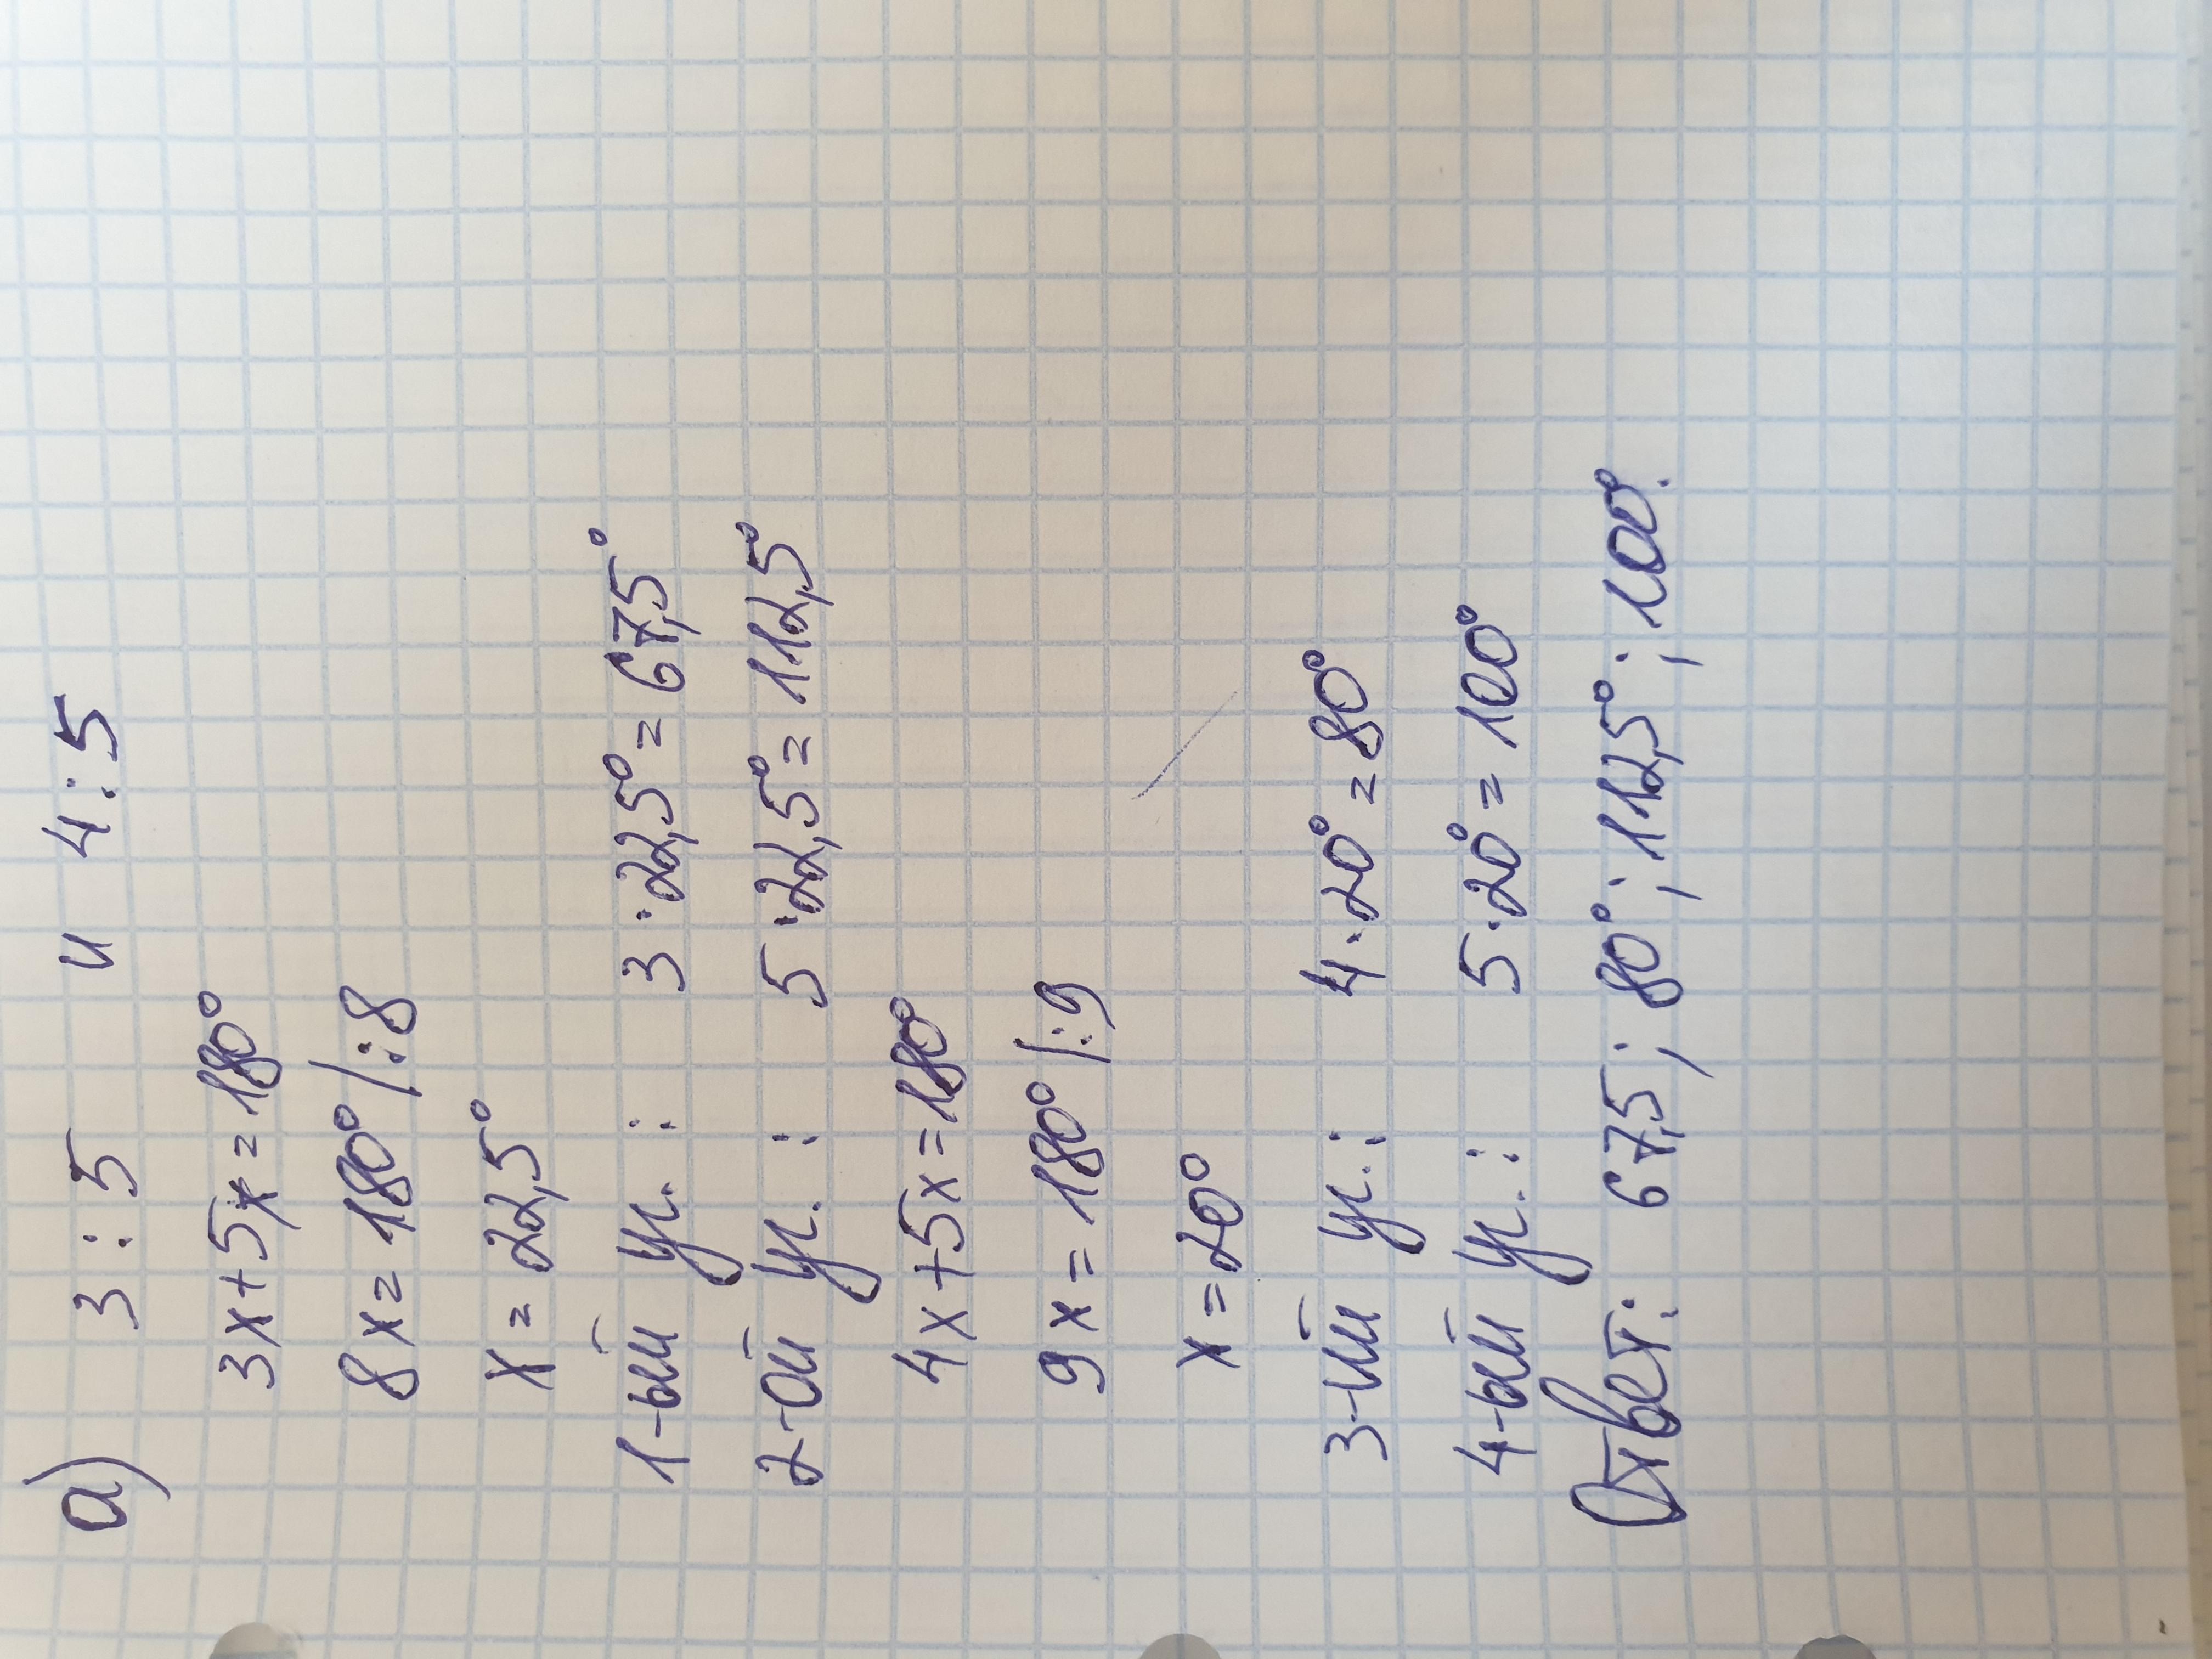 а) 3:5 и 4:5
3x+5x=180°
8x=180° |:8
x=22,5°
1-ый уг. : 3·22,5°=67,5°
2-ой уг. : 5·22,5°=112,5°
4x+5x=180°
9x=180° |:9
x=20°
3-ий уг.: 4·20°=80°
4-ый уг.: 5·20°=100°
Ответ: 67,5; 80°; 112,5°; 100°.